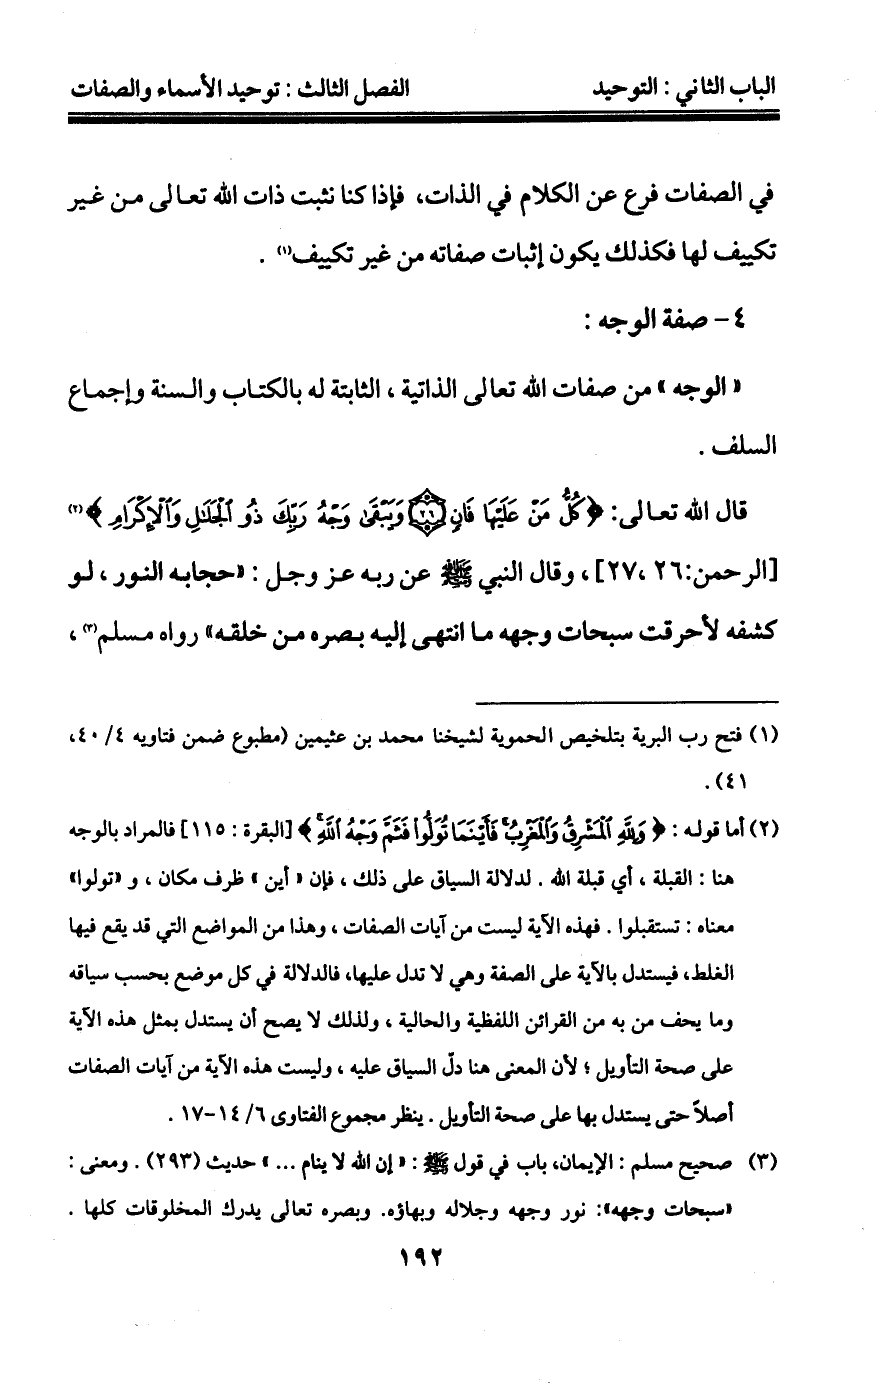 الباب الثاني : التوحيد الفصل الثالث : توحيد الأسماء والصفات
في الصفات فرع عن الكلام في الذات، فإذا كنا نثبت ذات الله تعالى من غير
تكييف لها فكذلك يكون إثبات صفاته من غير تكييف(١) .
٤ – صفة الوجه :
« الوجه » من صفات الله تعالى الذاتية ، الثابتة له بالكتاب والسنة وإجماع
السلف .
قال الله تعالى: ﴿ كُلُّ مَنْ عَلَيْهَا فَانٍ ۝٢٦ وَيَبْقَىٰ وَجْهُ رَبِّكَ ذُو ٱلْجَلَـٰلِ وَٱلْإِكْرَامِ ﴾(٢)
[الرحمن:٢٦ ،٢٧] ، وقال النبي ﷺ عن ربه عز وجل : «حجابه النور ، لو
كشفه لأحرقت سبحات وجهه ما انتهى إليه بصره من خلقه» رواه مسلم(٣) ،
(١) فتح رب البرية بتلخيص الحموية لشيخنا محمد بن عثيمين (مطبوع ضمن فتاويه ٤/ ٤٠،
٤١) .
(٢) أما قوله : ﴿ وَلِلَّهِ ٱلْمَشْرِقُ وَٱلْمَغْرِبُ ۚ فَأَيْنَمَا تُوَلُّوا۟ فَثَمَّ وَجْهُ ٱللَّهِ ۚ ﴾ [البقرة : ١١٥] فالمراد بالوجه
هنا : القبلة ، أي قبلة الله . لدلالة السياق على ذلك ، فإن « أين » ظرف مكان ، و «تولوا»
معناه : تستقبلوا . فهذه الآية ليست من آيات الصفات ، وهذا من المواضع التي قد يقع فيها
الغلط، فيستدل بالآية على الصفة وهي لا تدل عليها، فالدلالة في كل موضع بحسب سياقه
وما يحف من به من القرائن اللفظية والحالية ، ولذلك لا يصح أن يستدل بمثل هذه الآية
على صحة التأويل ؛ لأن المعنى هنا دلّ السياق عليه ، وليست هذه الآية من آيات الصفات
أصلاً حتى يستدل بها على صحة التأويل . ينظر مجموع الفتاوى ٦/ ١٤–١٧ .
(٣) صحيح مسلم : الإيمان، باب في قول ﷺ : « إن الله لا ينام ... » حديث (٢٩٣) . ومعنى :
«سبحات وجهه»: نور وجهه وجلاله وبهاؤه. وبصره تعالى يدرك المخلوقات كلها .
١٩٢